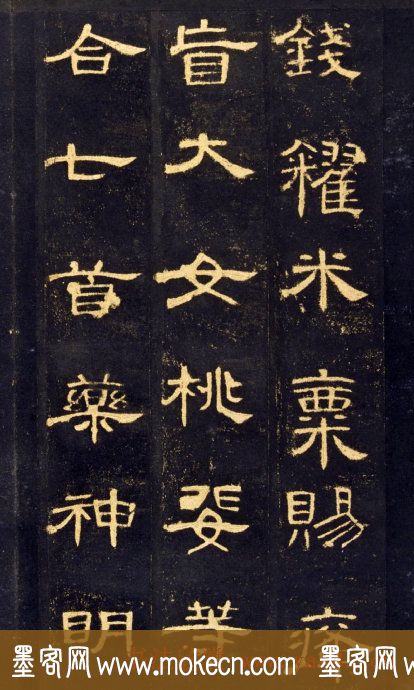 錢糴米粟賜癃
盲大女桃婓等
合七首藥神明
墨客网 www.mokecn.com 墨客网